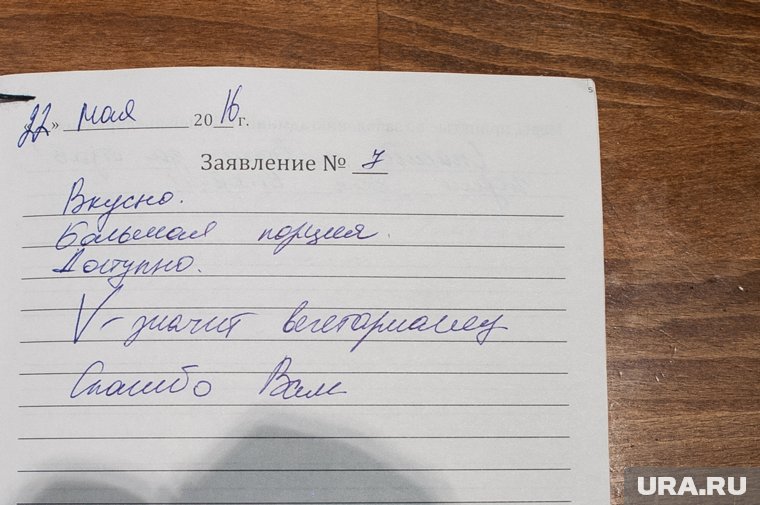 22» мая 2016 г.
Заявление № 7
Вкусно.
Большая порция.
Доступно.
V - значит вегетарианец
Спасибо Вам
5
URA.RU